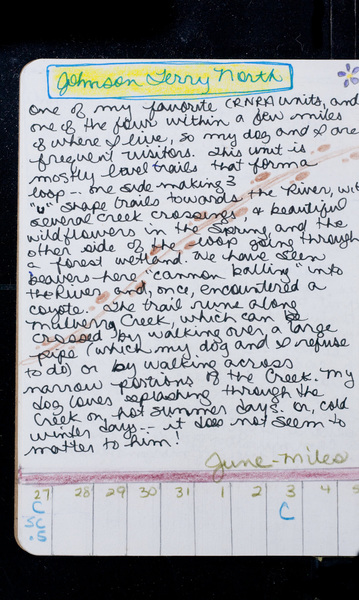 Johnson Ferry North
one of my favorite CRNRA units, and
one of the four within a few miles
of where I live, so my dog and I are
frequent visitors. This unit is
mostly level trails that form a
loop -- one side making 3
"u" shape trails towards the River, wit
several creek crossings & beautiful
wildflowers in the Spring, and the
other side of the loop going through
a forest wetland. We have seen
beavers here "cannon balling" into
the River and, once, encountered a
coyote. The trail runs along
Mulberry Creek, which can be
crossed by walking over a large
pipe (which my dog and I refuse
to do) or by walking across
narrow portions of the Creek. My
dog loves splashing through the
Creek on hot summer days. or, cold
winter days -- it does not seem to
matter to him!
June-Miles
27 28 29 30 31 1 2 3 4 5
C C
SC
.5